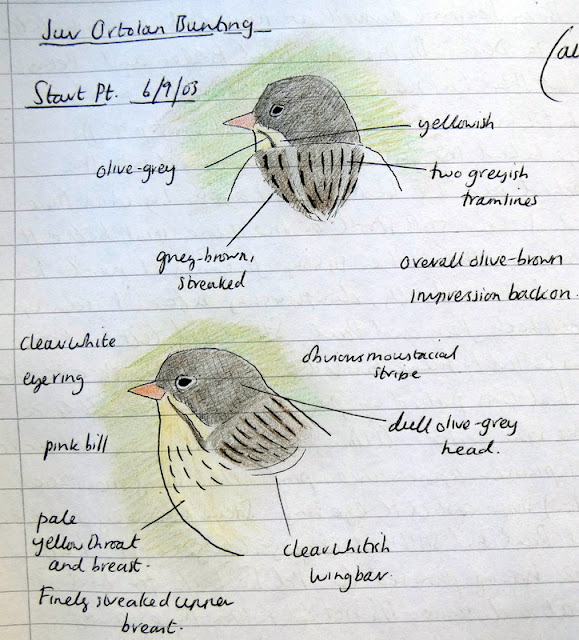 Juv Ortolan Bunting
Start Pt. 6/9/03
yellowish
olive-grey
two greyish
tramlines
grey-brown,
streaked
overall olive-brown
impression back on.
clear white
eyering
obvious moustacial
stripe
dull olive-grey
head.
pink bill
pale
yellow throat
and breast.
clear whitish
wingbar.
Finely streaked upper
breast.